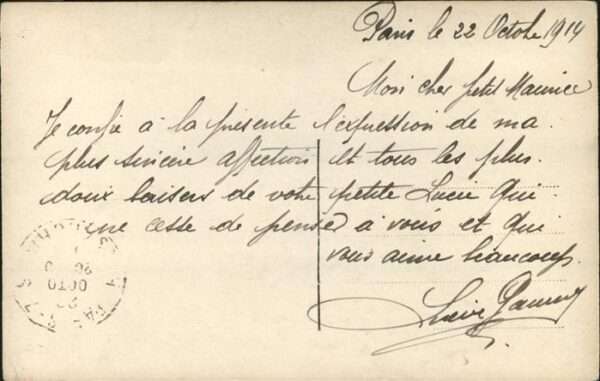 Paris le 22 Octobre 1914
Mon cher petit Maurice
Je confie à la présente l'expression de ma
plus sincère affection et tous les plus
doux baisers de votre petite Lucie qui
ne cesse de penser à vous et qui
vous aime beaucoup.
Lucie